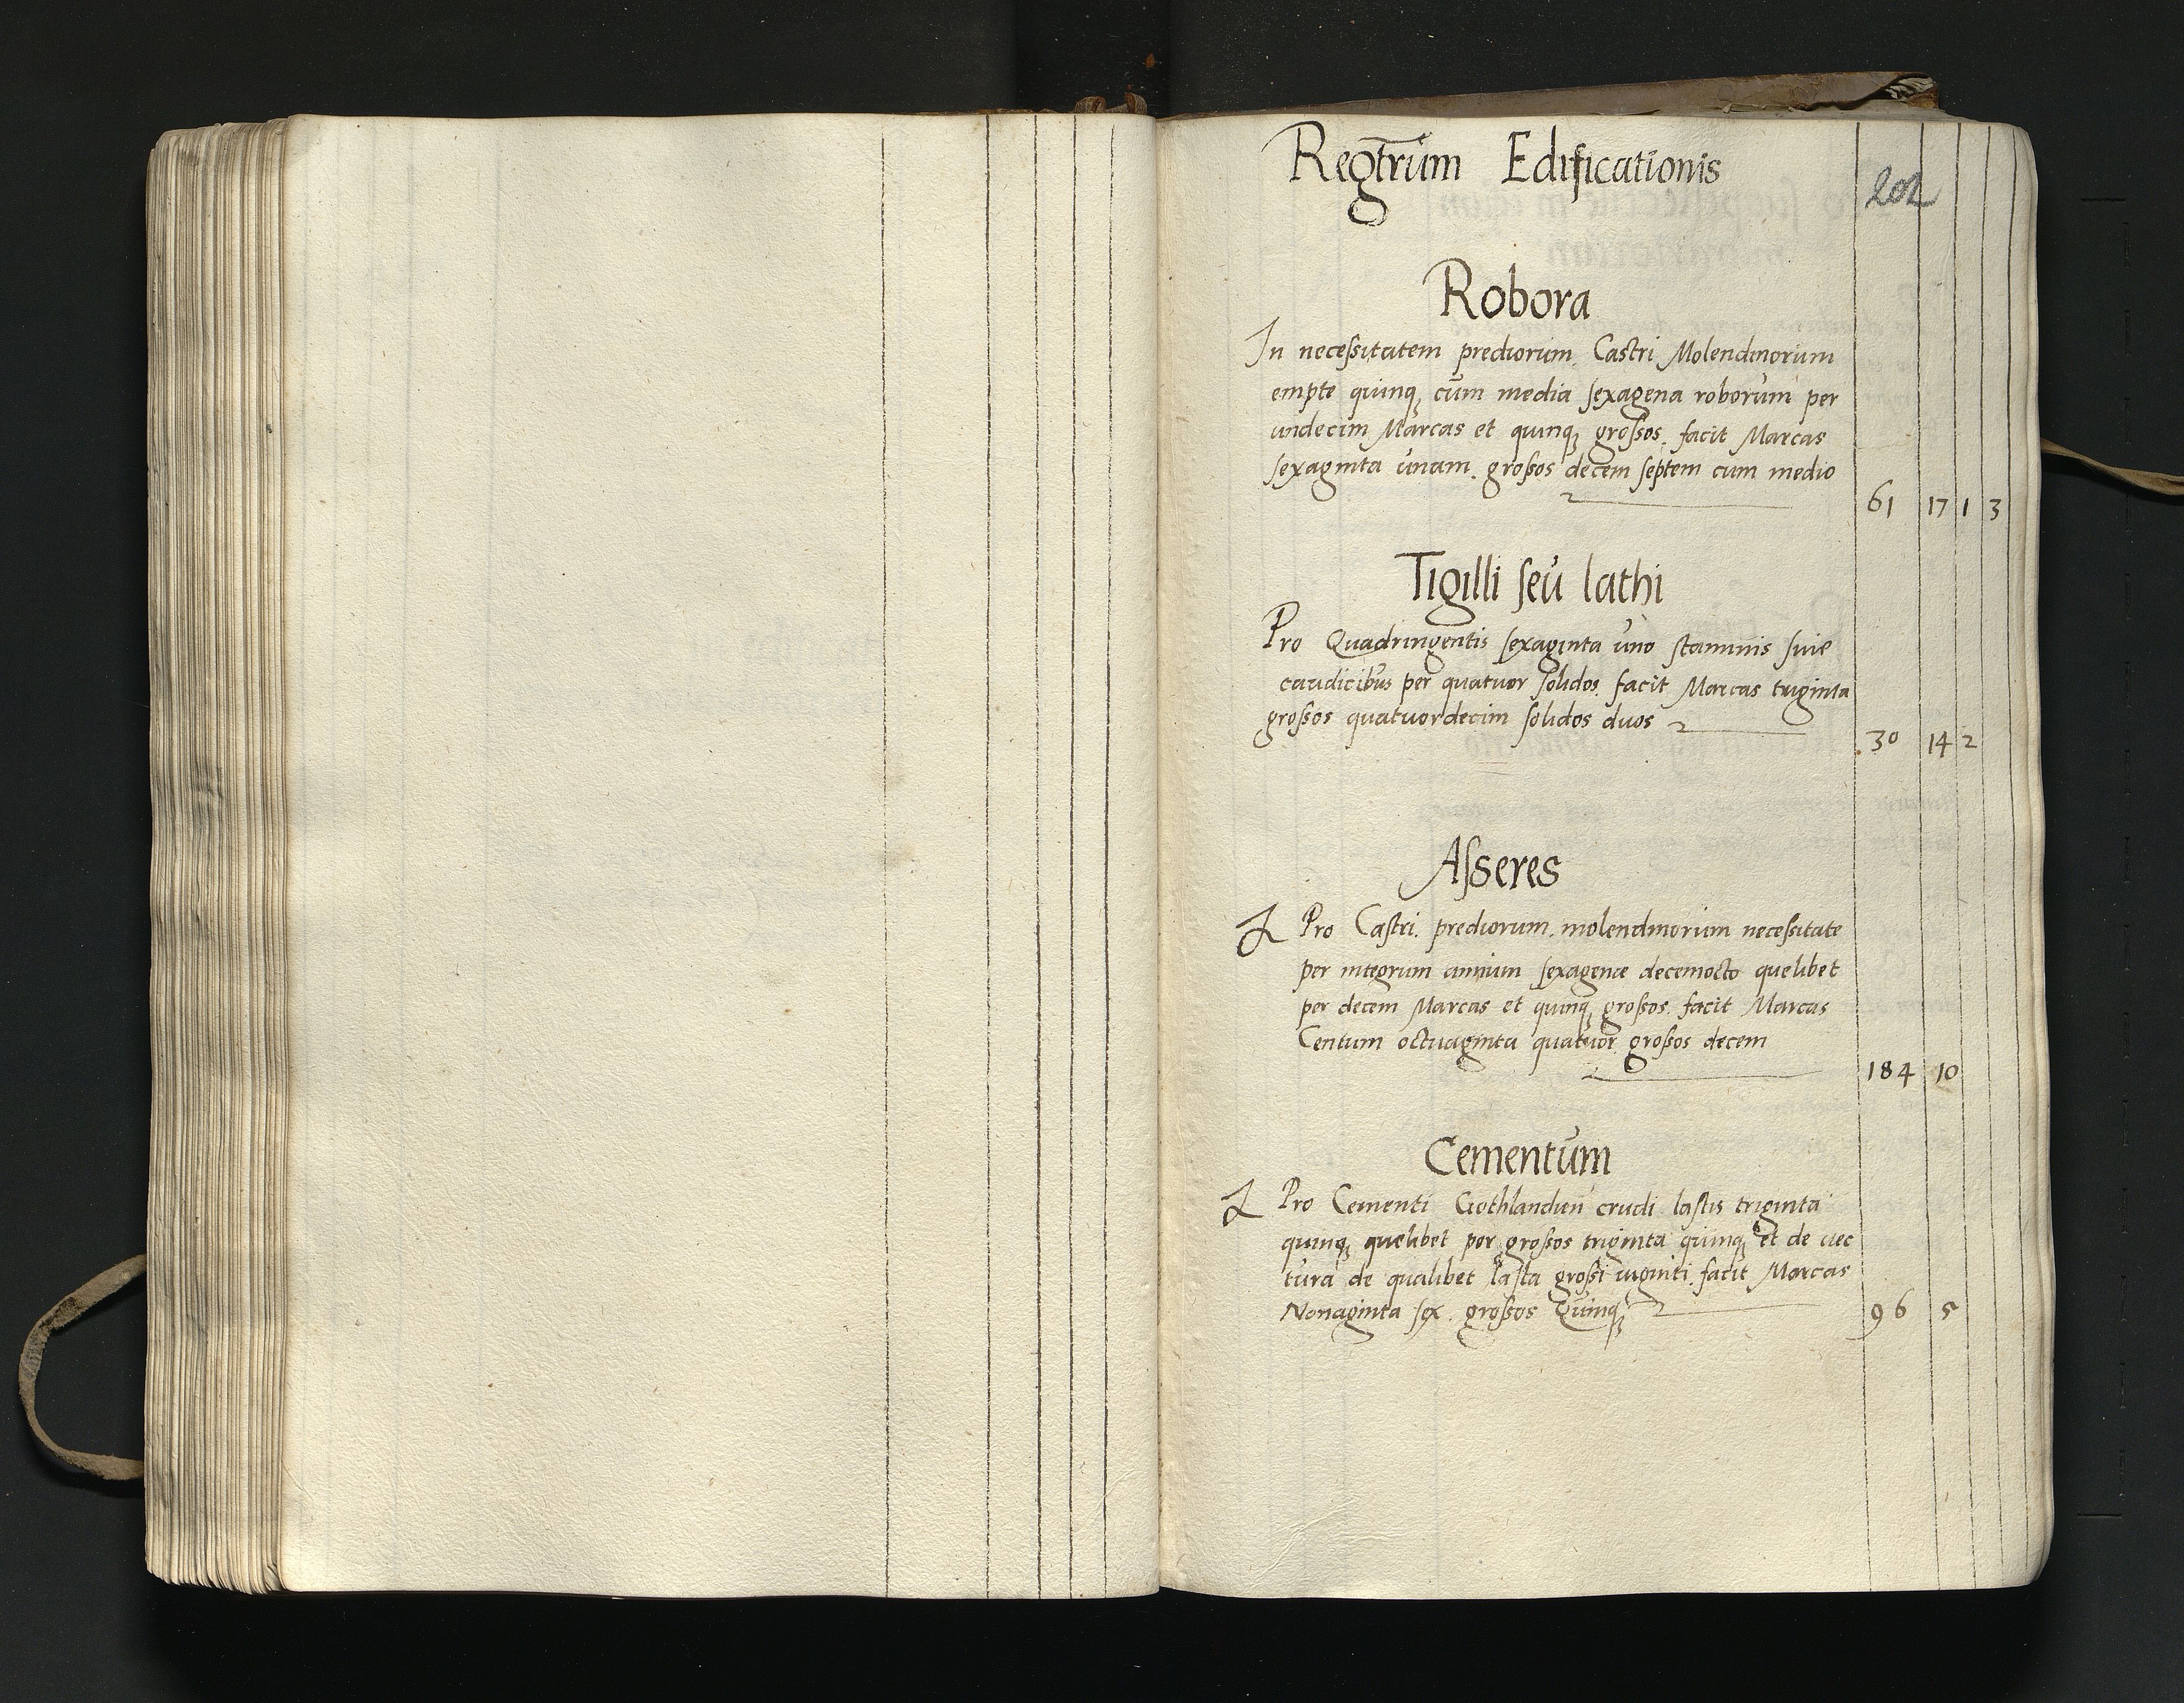 Regtrum Edificationis
202
Robora
In necessitatem prediorum. Castri Molendinorum
empte quinq cum media sexagena roborum per
undecim Marcas et quinq grossos. facit Marcas
sexaginta unam. grossos decem septem cum medio
61 17 1 3
Tigilli seu lathi
Pro Quadringentis sexaginta uno staminis sive
caudicibus per quatuor solidos. facit Marcas triginta
grossos quatuordecim solidos duos
30 14 2
Asseres
Pro Castri. prediorum. molendinorum necessitate
per integrum annum sexagene decemocto quelibet
per decem Marcas et quinq grossos. facit Marcas
Centum octuaginta quatuor grossos decem
184 10
Cementum
Pro Cementi Gothlandini crudi lastis triginta
quinq quelibet per grossos triginta quinq et de vec
tura de qualibet lasta grossi viginti. facit Marcas
Nonaginta sex. grossos Quinq
96 5